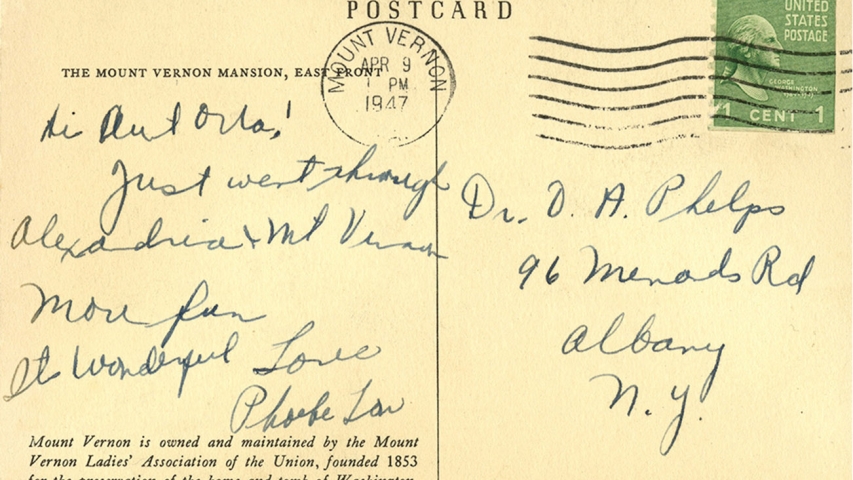 POSTCARD
UNITED
STATES
POSTAGE
GEORGE
WASHINGTON
1 CENT 1
MOUNT VERNON
APR 9
1 PM
1947
THE MOUNT VERNON MANSION, EAST FRONT
Hi Aunt Orla!
Just went through
Alexandria & Mt Vernon
More fun
Its Wonderful Love
Phoebe Lou
Dr. O. A. Phelps
96 Menands Rd
Albany
N.Y.
Mount Vernon is owned and maintained by the Mount
Vernon Ladies' Association of the Union, founded 1853
for the preservation of the home and tomb of Washington.